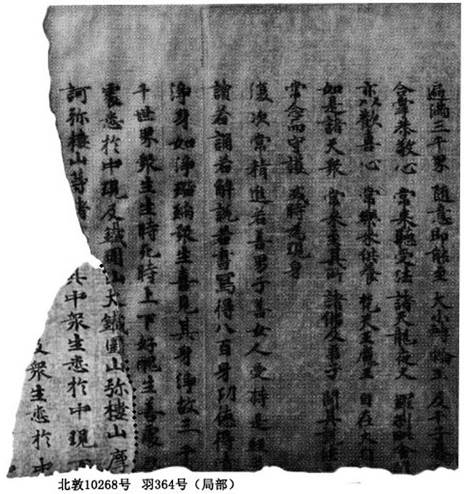 遍滿三千界 隨意即能至 大小轉輪王 及千子眷
合掌恭敬心 常来聽受法 諸天龍夜叉 羅刹毗舍
亦以歡喜心 常樂来供養 梵天王魔王 自在大自
如是諸天衆 常来至其所 諸佛及弟子 聞其說法
常念而守護 或時為現身
復次常精進若善男子善女人受持是經
讀若誦若解說若書寫得八百身功德得
淨身如淨琉璃衆生憙見其身淨故三千
千世界衆生生時死時上下好醜生善處
處悉於中現及鐵圍山大鐵圍山弥樓山摩
訶弥樓山等諸 其中衆生悉於中現
及衆生悉於中
北敦10268号 羽364号（局部）